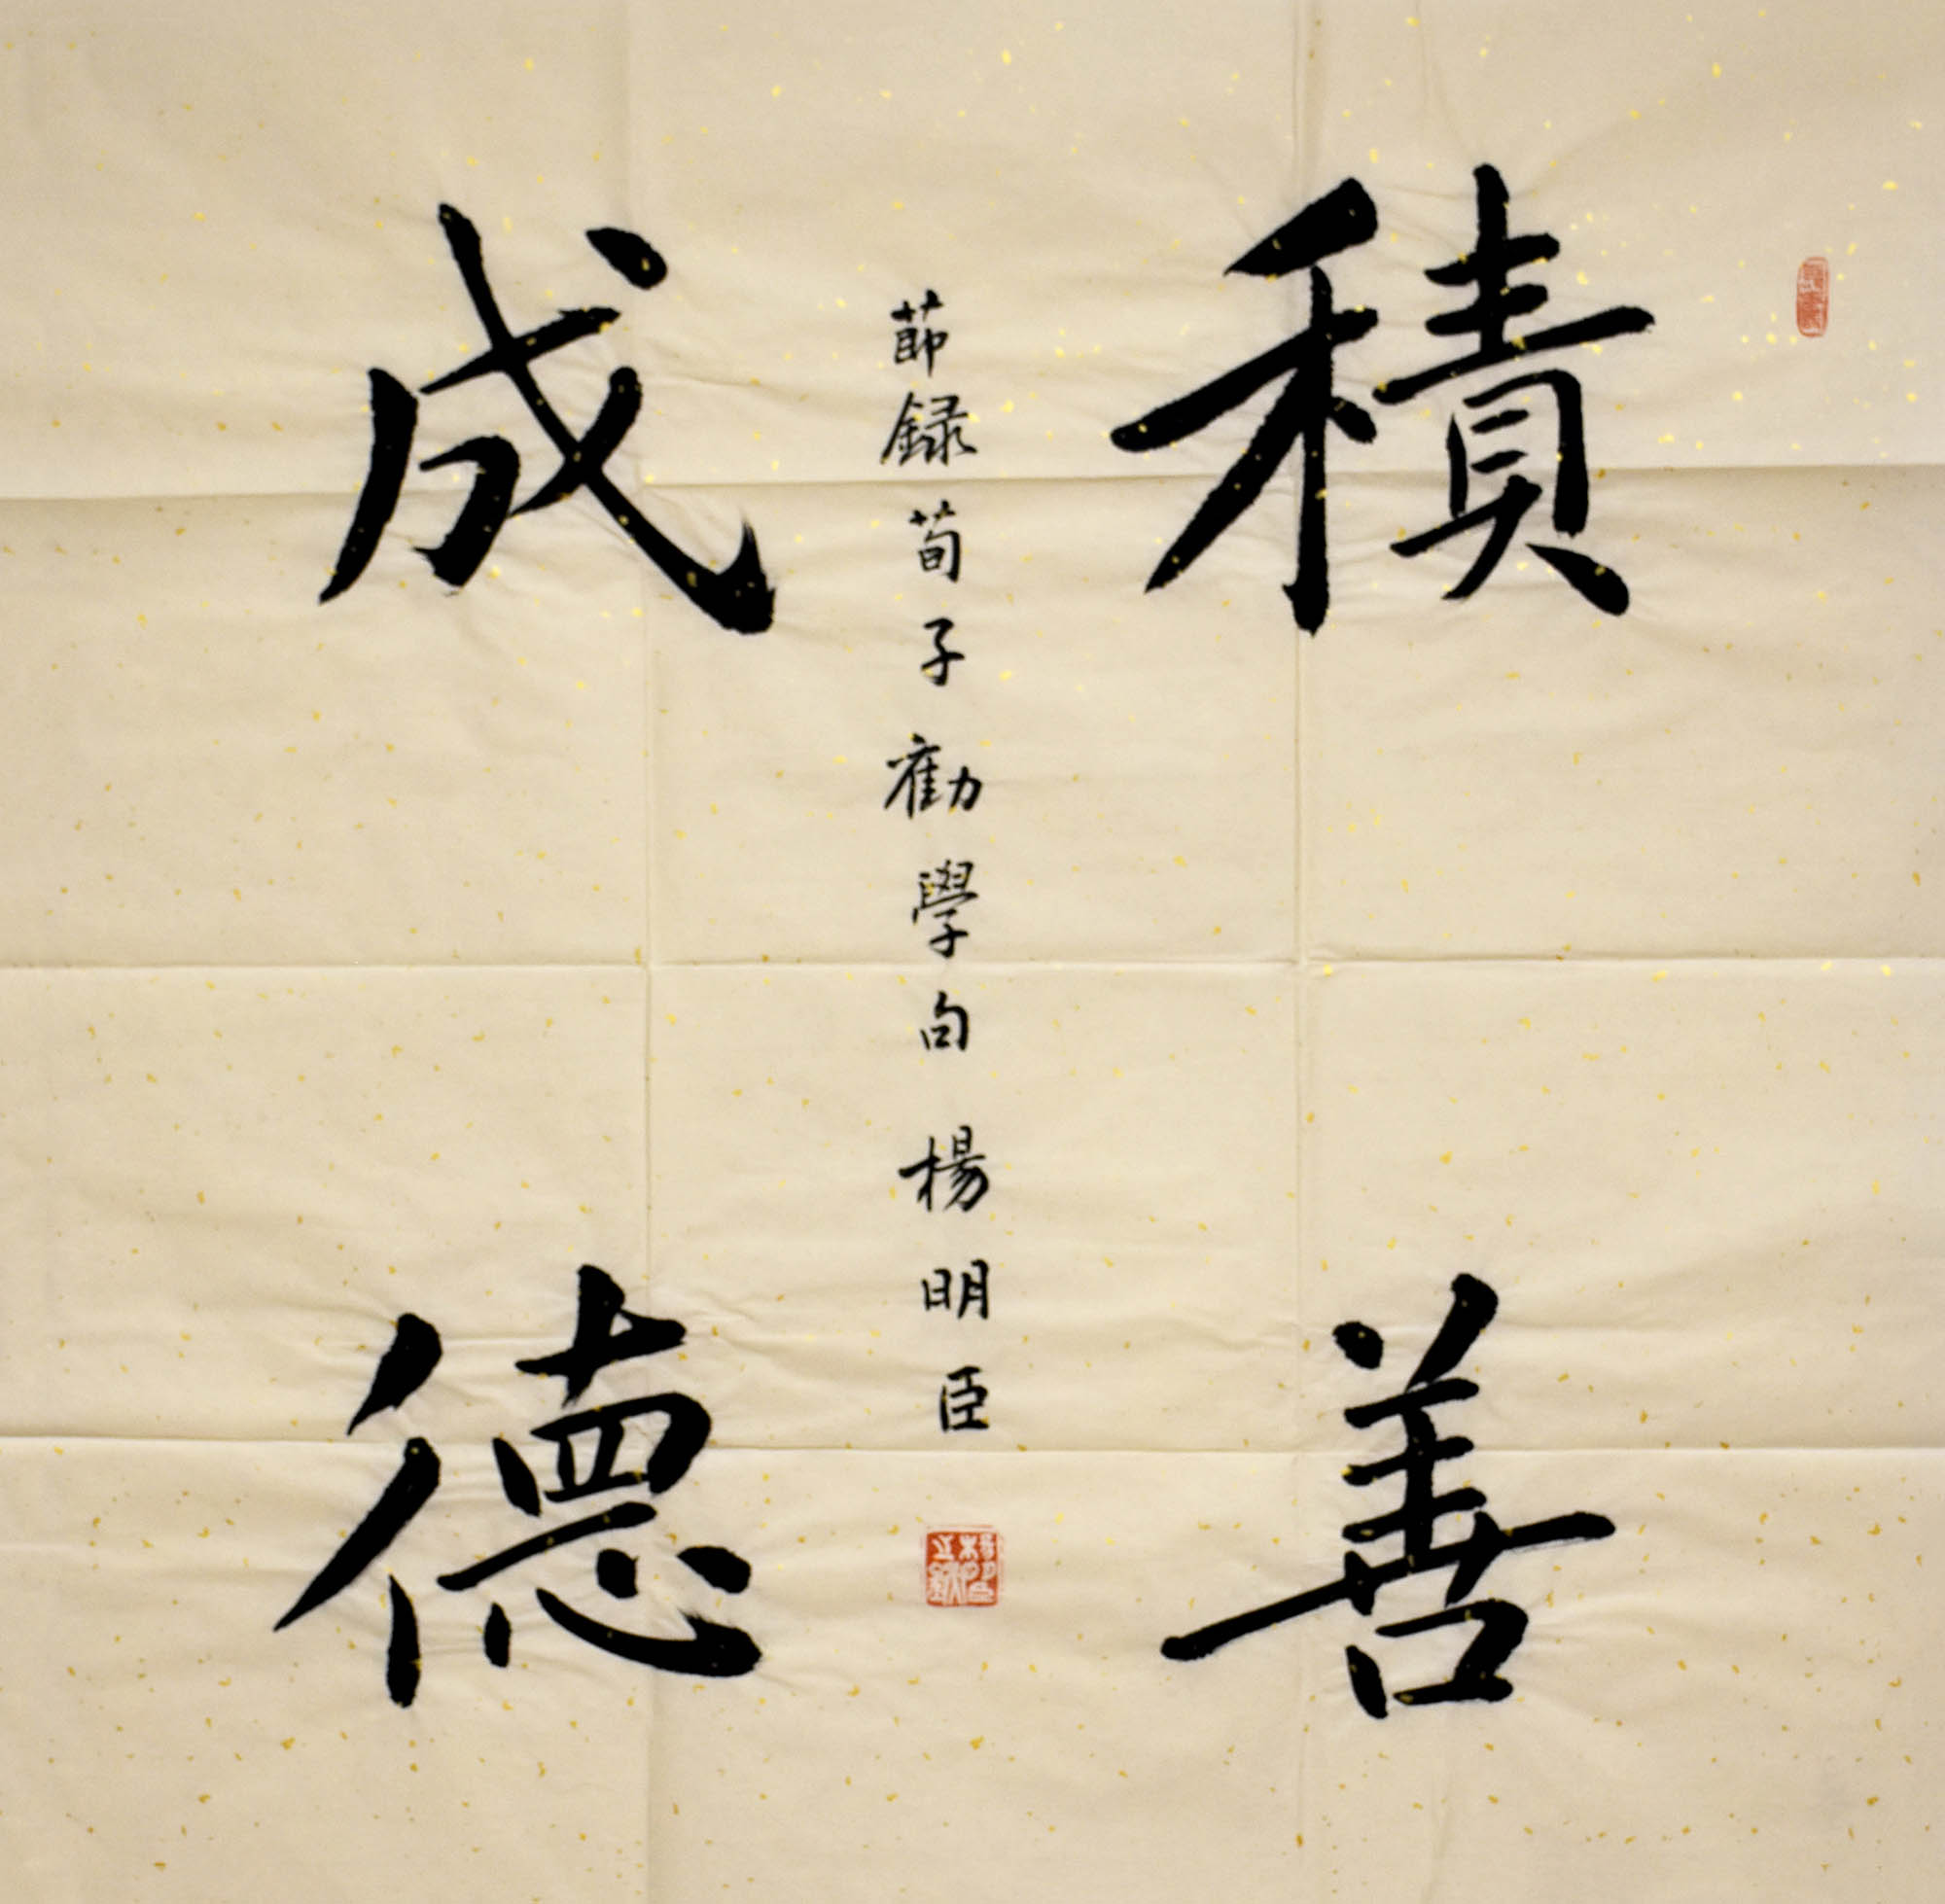 積善
成德
節録荀子勸學句楊明臣